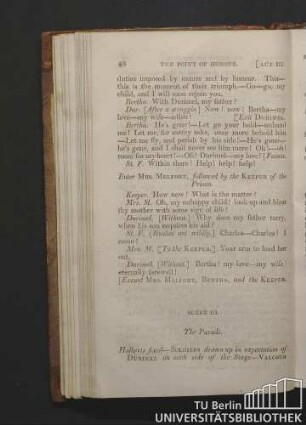 48 THE POINT OF HONOUR. [ACT III.
duties imposed by nature and by honour. This—
this is the moment of their triumph.—Go—go, my
child, and I will soon rejoin you.
Bertha. With Durimel, my father?
Dur. [After a struggle.] Now! now! Bertha—my
love—my wife—adieu! [Exit DURIMEL.
Bertha. He's gone!—Let go your hold—unhand
me! Let me, for mercy sake, once more behold him
—Let me fly, and perish by his side!—He's gone—
he's gone, and I shall never see him more! Oh!—oh
my heart!—Oh! Durimel—my love! [Faints.
St. F. Within there! Help! help! help!
Enter MRS. MELFORT, followed by the KEEPER of the
Prison.
Keeper. How now! What is the matter?
Mrs. M. Oh, my unhappy child! look up and bless
thy mother with some sign of life!
Durimel. [Without.] Why does my father tarry,
when his son requires his aid?
St. F. [Rushes out wildly.] Charles—Charles! I
come!
Mrs. M. [To the KEEPER.] Your arm to lead her
out.
Durimel. [Without.] Bertha! my love—my wife!
eternally farewell!
[Exeunt MRS. MELFORT, BERTHA, and the KEEPER.
SCENE III.
The Parade.
Halberts fixed—SOLDIERS drawn up in expectation of
DURIMEL on each side of the Stage—VALCOUR
TU Berlin
UNIVERSITÄTSBIBLIOTHEK